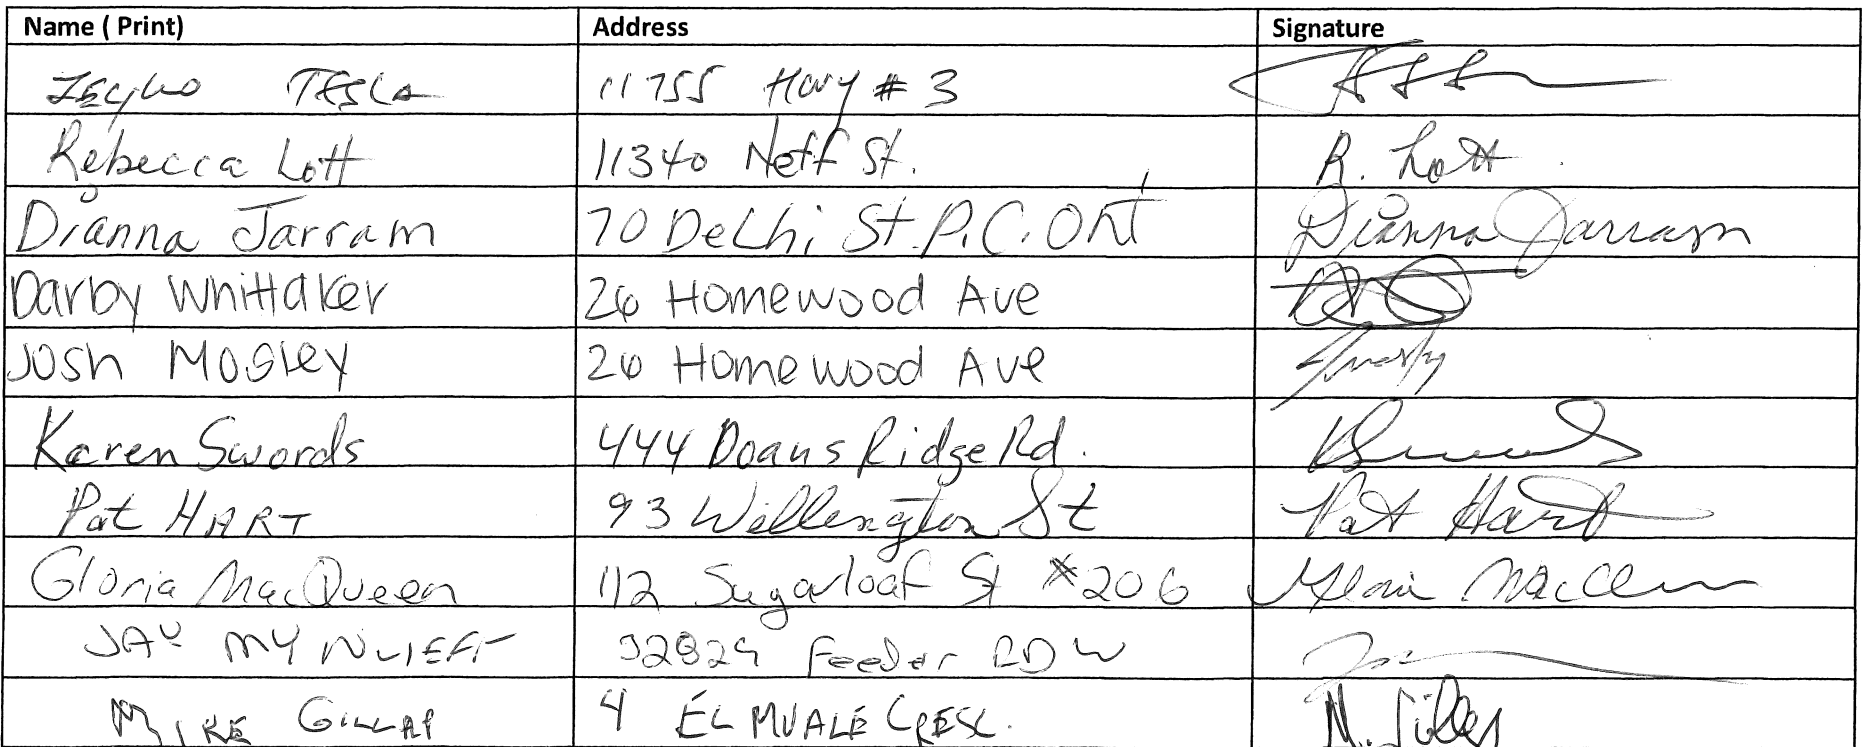 Name ( Print) Address Signature
TESLA 11755 Hwy # 3
Rebecca Lott 11340 Neff St. R. Lott
Dianna Jarram 70 Delhi St. P.C. Ont Dianna Jarram
Darby Whittaker 26 Homewood Ave
Josh Mosley 26 Homewood Ave
Karen Swords 444 Doans Ridge Rd.
Pat HART 93 Wellington St Pat Hart
Gloria MacQueen 112 Sugarloaf St #206
JAY 32829 Feeder RD W
MIKE 4 CRESC.